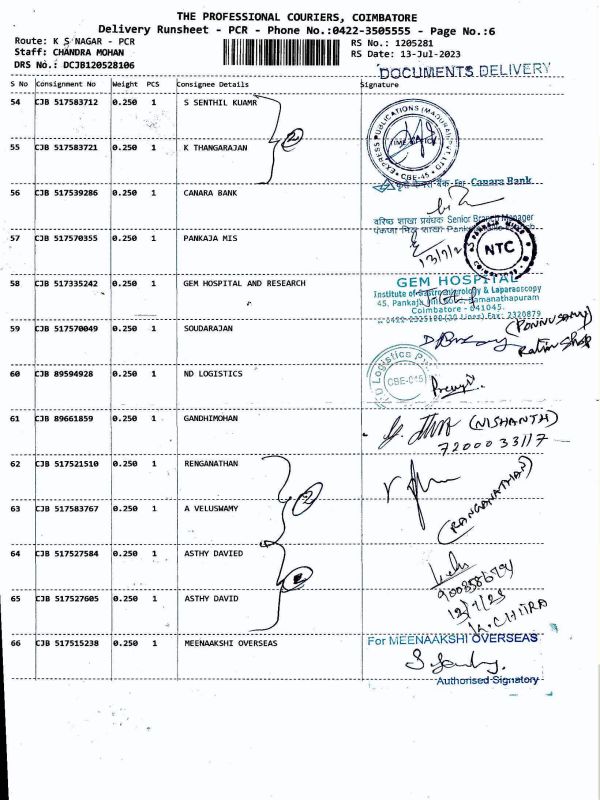 THE PROFESSIONAL COURIERS, COIMBATORE
Delivery Runsheet - PCR - Phone No.:0422-3505555 - Page No.:6
Route: K S NAGAR - PCR RS No.: 1205281
Staff: CHANDRA MOHAN RS Date: 13-Jul-2023
DRS No.: DCJB120528106
DOCUMENTS DELIVERY
S No Consignment No Weight PCS Consignee Details Signature
54 CJB 517583712 0.250 1 S SENTHIL KUAMR
EXPRESS PUBLICATIONS (MADURAI) PVT LTD
TIME OFFICE
CBE-45
55 CJB 517583721 0.250 1 K THANGARAJAN
2
For Canara Bank
56 CJB 517539286 0.250 1 CANARA BANK
वरिष्ठ शाखा प्रबंधक Senior Branch Manager
57 CJB 517570355 0.250 1 PANKAJA MIS
13/7/2
NTC
58 CJB 517335242 0.250 1 GEM HOSPITAL AND RESEARCH
GEM HOSPITAL
Institute of Gastroenterology & Laparoscopy
45, Pankaja Mill Road, Ramanathapuram
Coimbatore - 641045.
0422-2325100 (30 Lines) Fax: 2320879
59 CJB 517570049 0.250 1 SOUDARAJAN
(PONNUSAMY)
Ration Shop
60 CJB 89594928 0.250 1 ND LOGISTICS
Logistics
CBE-045
61 CJB 89661859 0.250 1 GANDHIMOHAN
(NISHANTH)
7200033117
62 CJB 517521510 0.250 1 RENGANATHAN
2
(RANGANATHAN)
63 CJB 517583767 0.250 1 A VELUSWAMY
64 CJB 517527584 0.250 1 ASTHY DAVIED
12/7/23
K. CHITRA
65 CJB 517527605 0.250 1 ASTHY DAVID
66 CJB 517515238 0.250 1 MEENAAKSHI OVERSEAS
For MEENAAKSHI OVERSEAS
Authorised Signatory